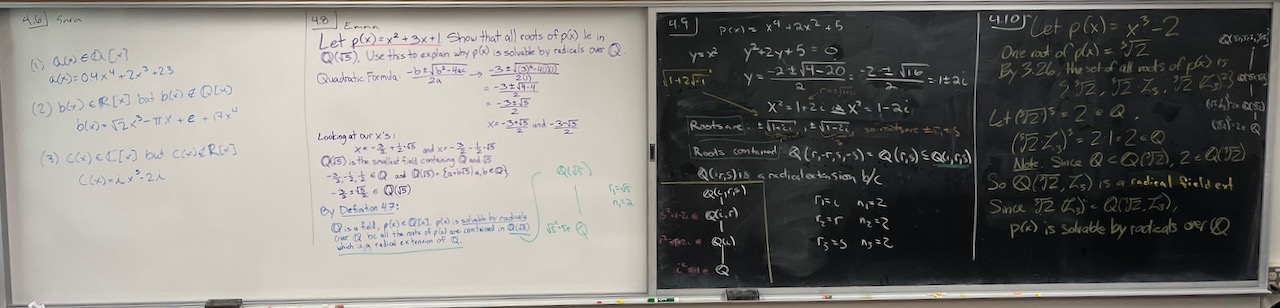 4.6 Sara
(1) a(x) ∈ Q[x]
a(x) = 64x⁴ + 2x³ + 23
(2) b(x) ∈ R[x] but b(x) ∉ Q[x]
b(x) = √2x⁵ - πx + e + 17x⁴
(3) C(x) ∈ C[x] but C(x) ∉ R[x]
C(x) = ix⁵ - 2i
4.8 Emma
Let p(x) = x² + 3x + 1. Show that all roots of p(x) lie in
Q(√5). Use this to explain why p(x) is solvable by radicals over Q.
Quadratic Formula: -b ± √b² - 4ac / 2a → -3 ± √(3)² - 4(1)(1) / 2(1)
= -3 ± √9-4 / 2
= -3 ± √5 / 2
x = -3+√5 / 2 and -3-√5 / 2
Looking at our x's:
x = -3/2 + 1/2·√5 and x = -3/2 - 1/2·√5
Q(√5) is the smallest field containing Q and √5
-3/2, -1/2, 1/2 ∈ Q and Q(√5) = {a+b√5 | a, b ∈ Q}
-3/2 ± √5/2 ∈ Q(√5)
By Definition 4.7:
Q is a field, p(x) ∈ Q[x]. p(x) is solvable by radicals
over Q bc all the roots of p(x) are contained in Q(√5)
which is a radical extension of Q.
Q(√5)
√5² = 5 ∈ Q
r₁ = √5
n₁ = 2
4.9
p(x) = x⁴ + 2x² + 5
y = x² y² + 2y + 5 = 0
y = -2 ± √4-20 / 2 = -2 ± √-16 / 2 = -1 ± 2i
X² = -1+2i X² = -1-2i
Roots are: ± √-1+2i, ± √-1-2i, so roots are ± r, ± s
Roots contained Q(r,-r,s,-s) = Q(r,s) ⊆ Q(i,r,s)
Q(i,r,s) is a radical extension b/c
r₁ = i n₁ = 2
r₂ = r n₂ = 2
r₃ = s n₃ = 2
Q(i,r,s)
Q(i,r)
Q(i)
Q
4.10
Let p(x) = x³ - 2
One root of p(x) = ∛2
By 3.26, the set of all roots of p(x) is
Let (∛2)³ = 2 ∈ Q,
(∛2 ζ₃)³ = 2·1 = 2 ∈ Q
Note: Since Q < Q(∛2), 2 ∈ Q(∛2)
So Q(∛2, ζ₃) is a radical field ext
Since
p(x) is solvable by radicals over Q